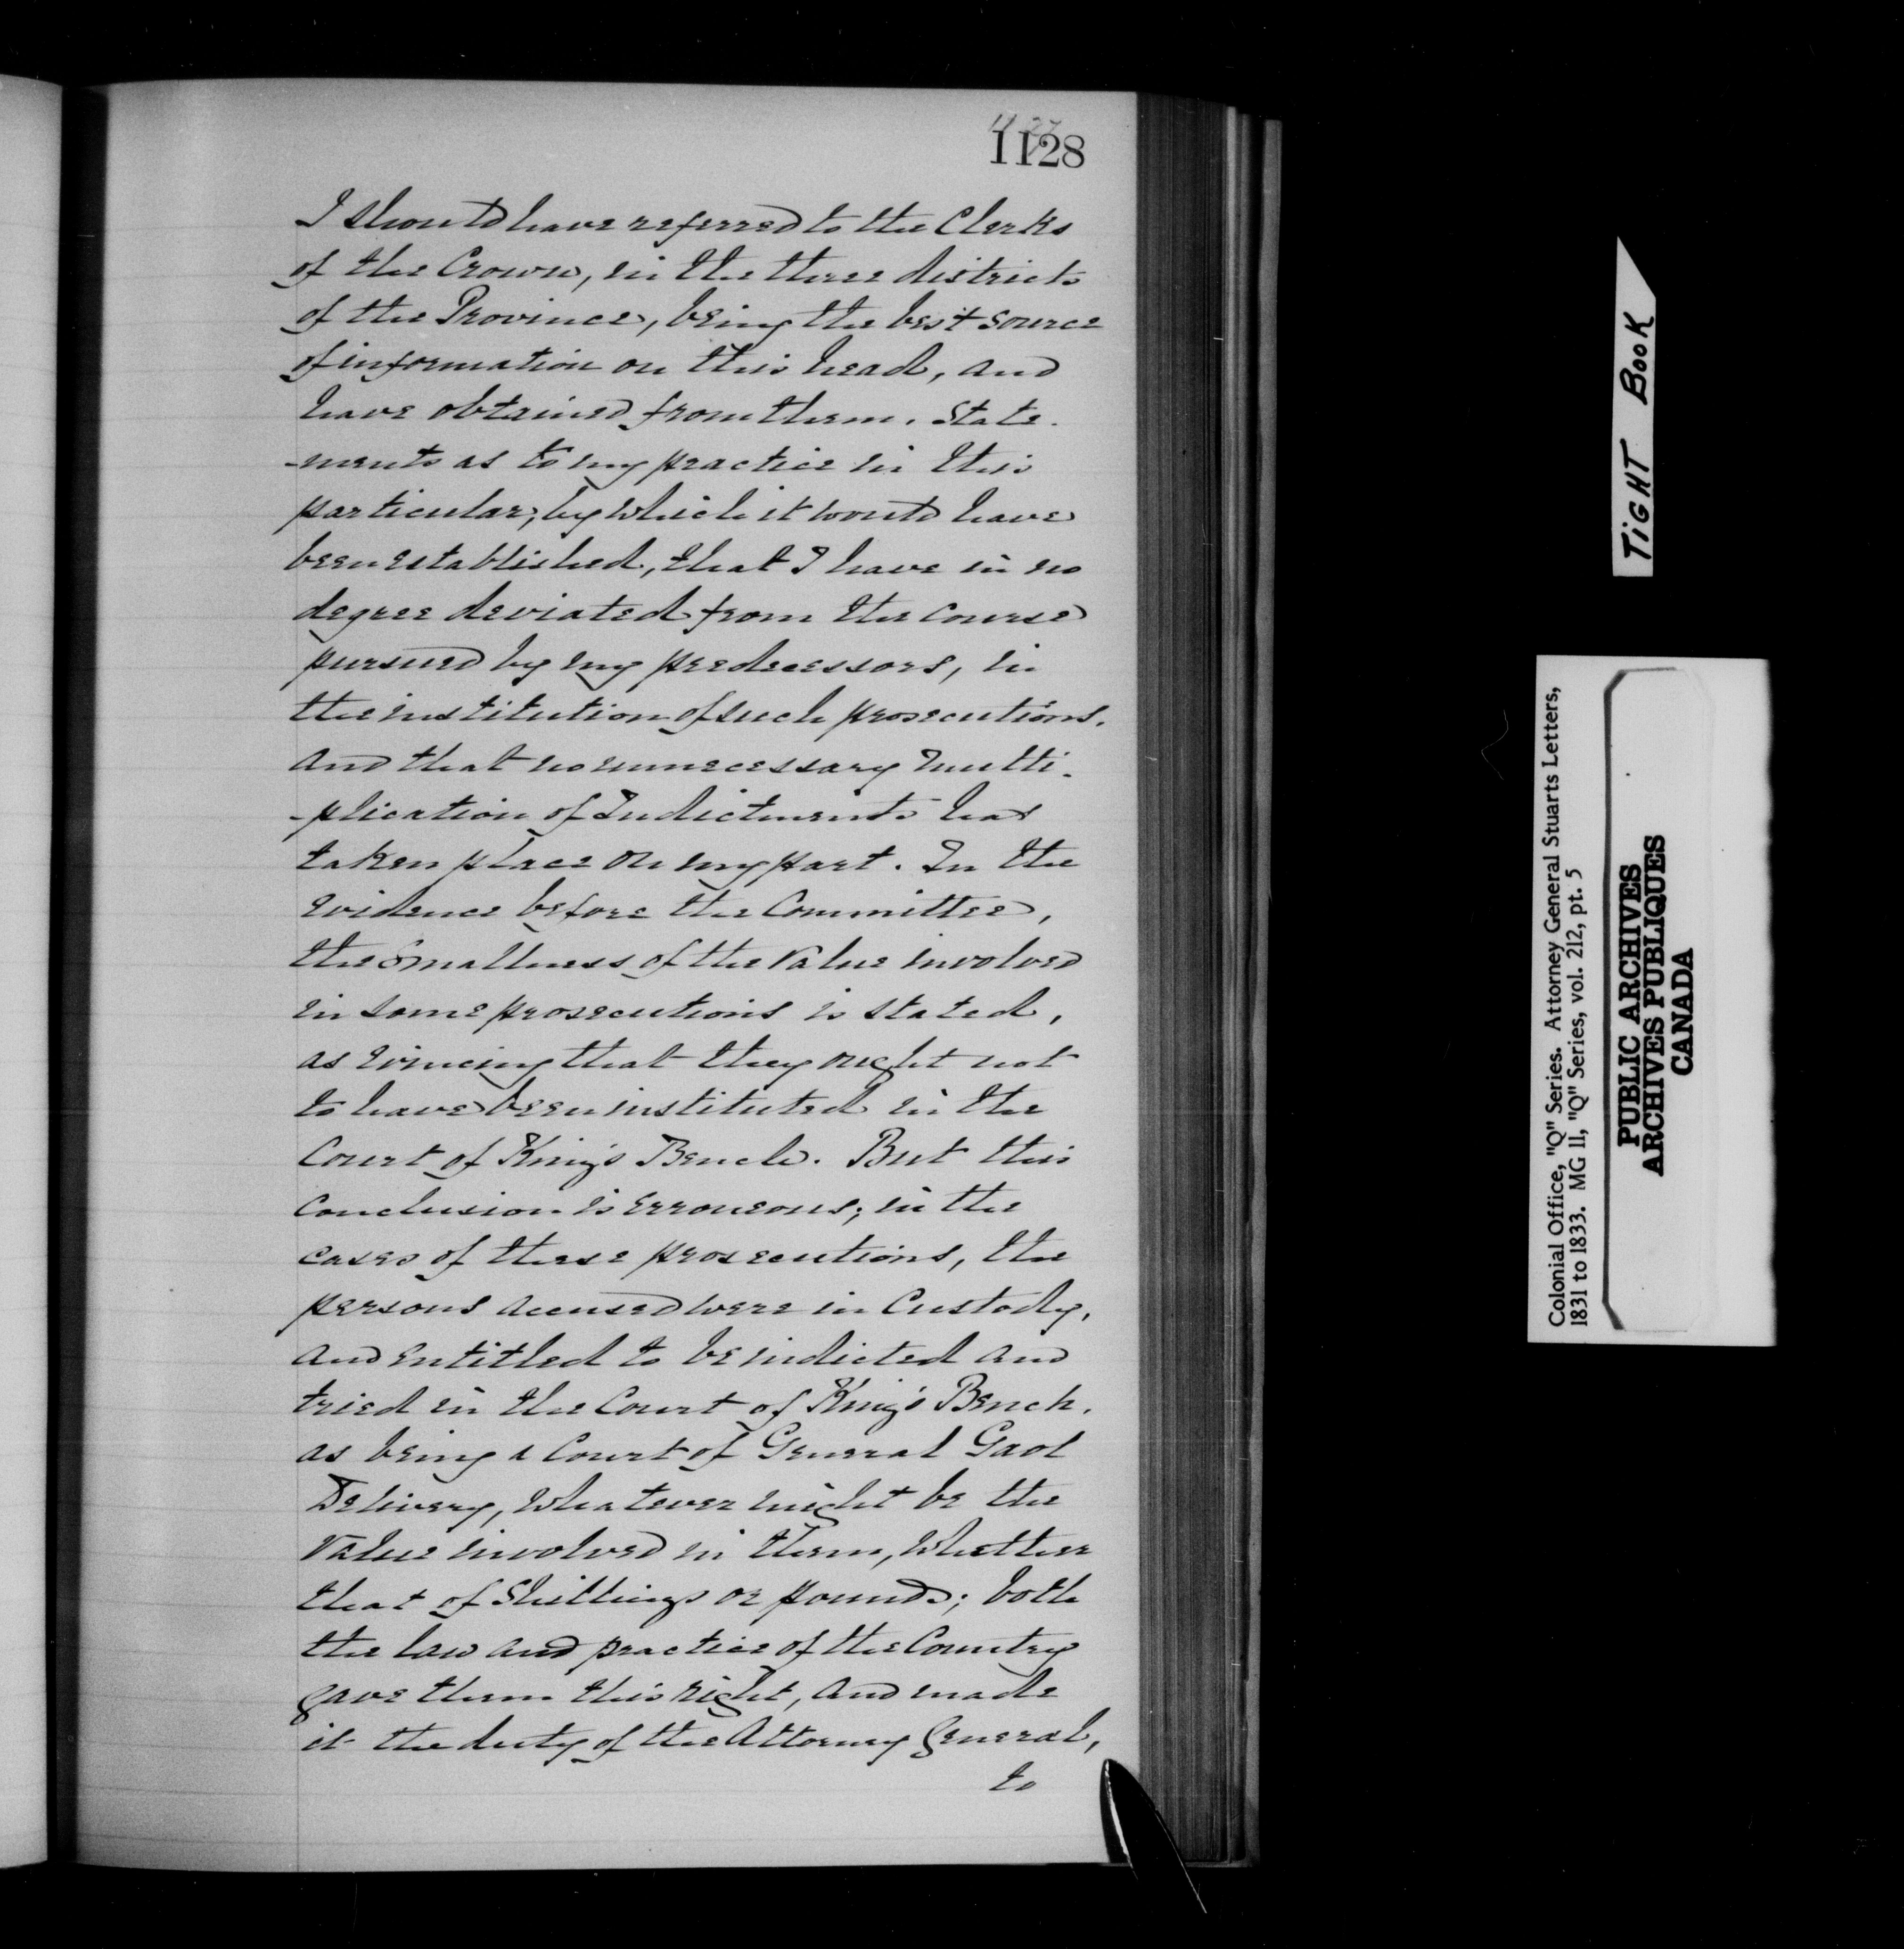 1127
1128
I should have referred to the Clerks
of the Crown, in the three districts
of the Province, being the best source
of information on this head, and
have obtained from them, State-
-ments as to my practice in this
particular, by which it would have
been established, that I have in no
degree deviated from the course
pursued by my predecessors, in
the institution of such prosecutions,
and that no unnecessary multi-
-plication of Indictments has
taken place on my part. In the
evidence before the Committee,
the smallness of the value involved
in some prosecutions is stated,
as evincing that they ought not
to have been instituted in the
Court of King's Bench. But this
conclusion is erroneous; in the
cases of these prosecutions, the
persons accused were in Custody,
and entitled to be indicted and
tried in the Court of King's Bench,
as being a Court of General Gaol
Delivery, whatever might be the
value involved in them, whether
that of Shillings or pounds; both
the law and practice of the Country
gave them this right, and made
it the duty of the Attorney General,
to
TIGHT BOOK
Colonial Office, "Q" Series. Attorney General Stuarts Letters,
1831 to 1833. MG 11, "Q" Series, vol. 212, pt. 5
PUBLIC ARCHIVES
ARCHIVES PUBLIQUES
CANADA